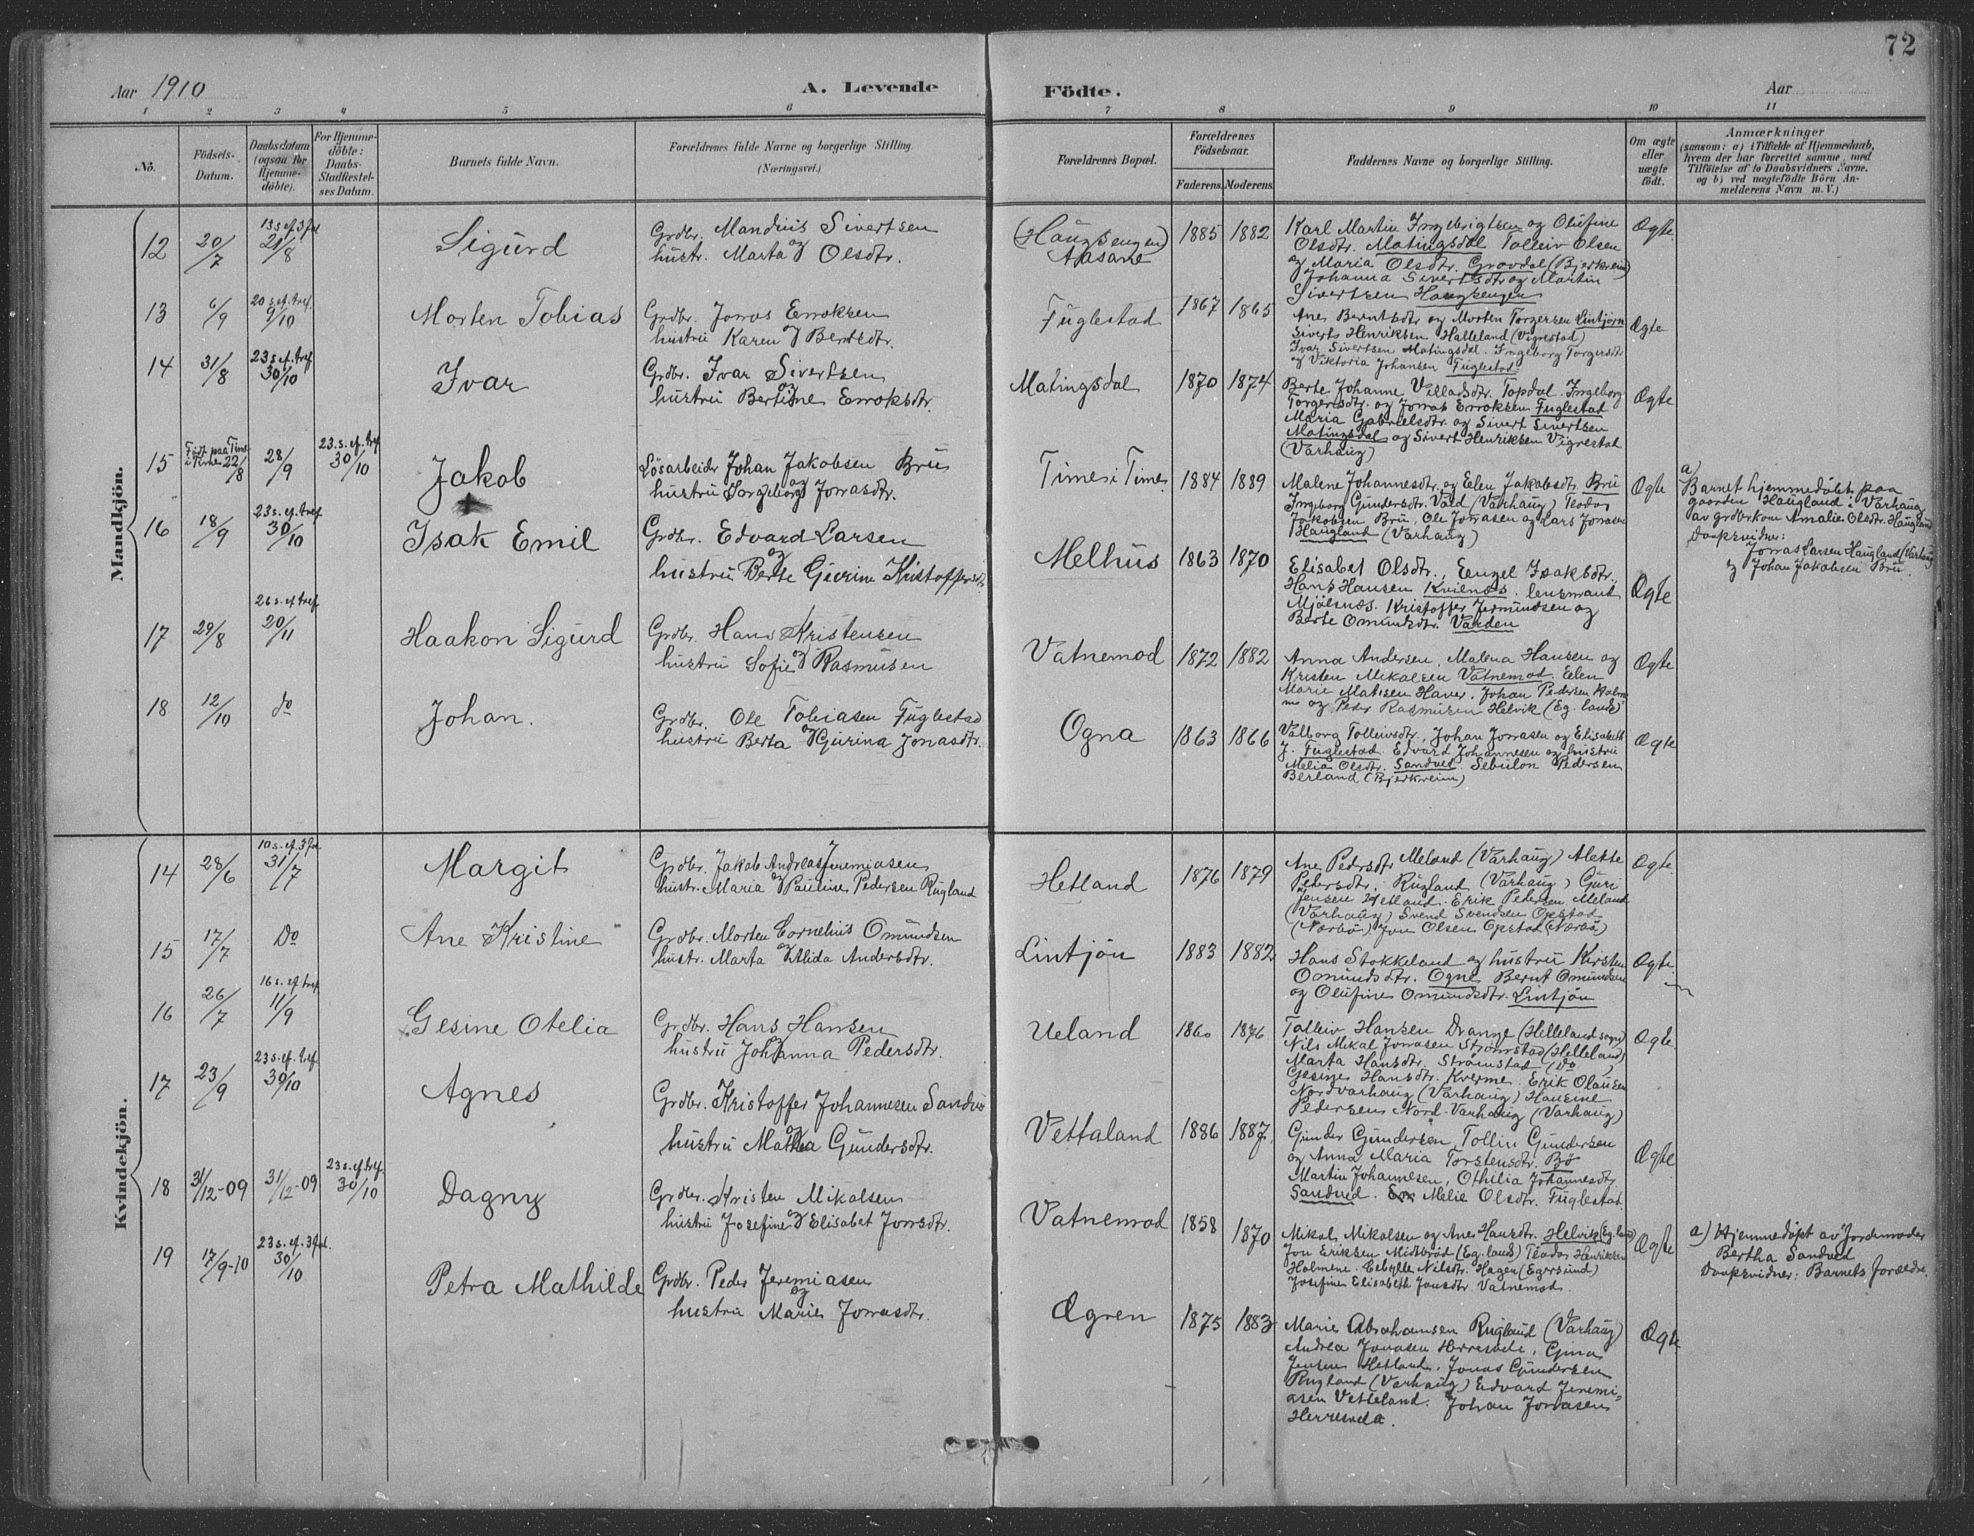 72
Aar 1910
A. Levende
Födte.
Aar
1 2 3 4 5 6 7 8 9 10 11
No.
Födsels-
Datum.
Daabsdatum
(ogsaa for
Hjemme-
döbte).
For Hjemme-
döbte:
Daabs-
Stadfæstel-
ses Datum.
Barnets fulde Navn.
Forældrenes fulde Navne og borgerlige Stilling.
(Næringsvei.)
Forældrenes Bopæl.
Forældrenes
Födselsaar.
Faderens. Moderens.
Faddernes Navne og borgerlige Stilling.
Om ægte
eller
uægte
født.
Anmærkninger
(saasom: a) i Tilfælde af Hjemmedaab,
hvem der har forrettet samme, med
Tilföielse af to Daabsvidners Navne.
og b) ved uægtefödte Börn An-
melderens Navn m. V.)
Mandkjön.
12 20/7
13 s. ef. 3fd.
21/8
Sigurd
Grdbr. Mandius Sivertsen
og
hustr. Marta Olsdtr.
(Haugsengen)
Aasane
1885 1882
Karl Martin Ingebrigtsen og Olufine
Olsdtr. Matingsdal Tolleiv Olsen
og Maria Olsdtr. Grovdal (Bjerkreim)
Johanna Sivertsdtr og Martin
Sivertsen Haugsengen
Ægte
13 6/9
20 s. ef. tref.
9/10
Morten Tobias
Grdbr. Jonas Enoksen
og
hustru Karen Berntsdtr.
Fuglestad
1867 1865
Ane Berntsdtr og Morten Torgersen Lintjørn
Siverts Henriksen Hælleland (Vigrestad)
Ivar Sivertsen Matingsdal. Ingeborg Torgersdtr
og Viktoria Johansen Fuglestad
Ægte
14 31/8
23 s. ef. tref.
30/10
Ivar
Grdbr. Ivar Sivertsen
og
hustru Bertine Enoksdtr.
Matingsdal
1870 1874
Berte Johanne Villadsdtr. Topdal Ingeborg
Torgersdtr. og Jonas Enoksen Fuglestad
Maria Gabrielsdtr. og Sivert Sivertsen
Matingsdal og Sivert Henriksen Vigrestad
(Varhaug)
Ægte
15
Født paa Time
i Time 22/8
28/9
23. s. ef. tref.
30/10
Jakob
Løsarbeider Johan Jakobsen Bru
og
hustru Ingeborg Jonasdtr.
Time i Time
1884 1889
Malene Johannesdtr. og Elen Jakobsdtr. Bru
Ingeborg Gundersdtr. Vald (Varhaug) Teodor
Jakobsen Bru, Ole Jonasen og Lars Jonasen
Haugland (Varhaug)
Ægte
a)
Barnet hjemmedøbt paa
gaarden Haugland i Varhaug
av grdbrkone Amalie Olsdtr. Haugland
Daapsvidner:
Jonas Larsen Haugland (Varhaug)
og Johan Jakobsen Bru.
16 18/9
23 s. ef. tref.
30/10
Isak Emil
Grdbr. Edvard Larsen
og
hustru Berte Gurine Kristoffersdtr
Melhus
1863 1870
Elisabet Olsdtr., Eengel Isaksdtr.
Hans Hansen Kvienes. lensmand
Mjølsnæs. Kristoffer Jermundsen og
Berte Omundsdtr. Varden
Ægte
17 29/8
26 s. ef. tref.
20/11
Haakon Sigurd
Grdbr. Hans Kristensen
og
hustru Sofie Rasmusen
Vatnemod
1872 1882
Anna Andersen, Malena Hansen og
Kristen Mikalsen Vatnemod. Elen
Marie Matisen Haver, Johan Pedersen Kolm
og Peder Rasmusen Helvik (Eg. lands)
Ægte
18 12/10
do
Johan.
Grdbr. Ole Tobiasen Fuglestad
og
hustru Berta Gurina Jonasdtr.
Ogna
1863 1866
Valborg Tolleivsdtr., Johan Jonasen og Elisabeth
J. Fuglestad. Edvard Johannesen og hustru
Melia Olsdtr. Sandved. Sebulon Pedersen
Berland (Bjerkreim)
Ægte
Kvindekjön.
14 28/6
10 s. ef. 3fd.
31/7
Margit
Grdbr. Jakob Andreas Jeremiasen
og
hustr. Maria Pauline Pedersen Rugland
Hetland
1876 1879
Ane Pedersdtr Meland (Varhaug) Alekte
Petersdtr. Rugland (Varhaug) Guri
Jensen Hetland. Erik Pedersen Meland
(Varhaug) Svend Svendsen Opstad
(Nærbø) Jon Olsen Opstad (Nærbø)
Ægte
15 17/7
Do
Ane Kristine
Grdbr. Morten Cornelius Omundsen
og
hustr. Marta Alida Andersdtr.
Lintjøn
1883 1882
Hans Stokkeland og hustru Kirsten
Omundsdtr. Ogne Bernt Omundsen
og Olufine Omundsdtr. Lintjøn
Ægte
16 26/7
16 s. ef. tref.
11/9
Gesine Otelia
Grdbr. Hans Hansen
og
hustru Johanna Pedersdtr.
Ueland
1860 1876
Tolleiv Hansen Drange (Helleland sogn)
Nils Mikal Jonasen Strømstad (Helleland)
Marta Hansdtr. Strømstad (Do)
Gesine Hansdtr. Kverme. Erik Olausen
Nordvarhaug (Varhaug) Hansine
Pedersen Nord-Varhaug (Varhaug)
Ægte.
17 23/9
23 s. ef. tref.
30/10
Agnes
Grdbr. Kristoffer Johannesen Sandve
og
hustru Mathea Gundersdtr.
Vettaland
1886 1887.
Gunder Gundersen, Tollin Gundersen
og Anna Maria Torstensdtr. Bø
Martin Johannesen, Othilia Johannesdtr.
Sandved. Melie Olsdtr. Fuglestad
Ægte
18 31/12-09
31/12-09
23 s. ef. tref.
30/10
Dagny
Grdbr. Kristen Mikalsen
og
hustru Josefine Elisabet Jonsdtr.
Vatnemod
1858 1870
Mikal Mikalsen og Ane Hansdtr. Helvik (Eg. land)
Jon Eriksen Midbrød (Eg. lands) Teodor Henriksen
Holmene. Cebylle Nilsdtr. Hagen (Egersund)
Josefine Elisabeth Jonsdtr. Vatnemod.
Ægte
a) Hjemmedøpt av Jordemoder
Bertha Sandved
Daapsvidner: Barnets forældre.
19 17/9-10
23 s. ef. 3fd.
30/10
Petra Mathilde
Grdbr. Peder Jeremiasen
og
hustru Marie Jonasdtr.
Ægren
1875 1883
Marie Abrahamsen Rugland (Varhaug)
Andrea Jonasen Herresvede, Gina
Jensen Hetland. Jonas Gundersen
Rugland (Varhaug) Edvard Jeremi-
asen Vetteland. Johan Jonasen
Herresvela.
Ægte